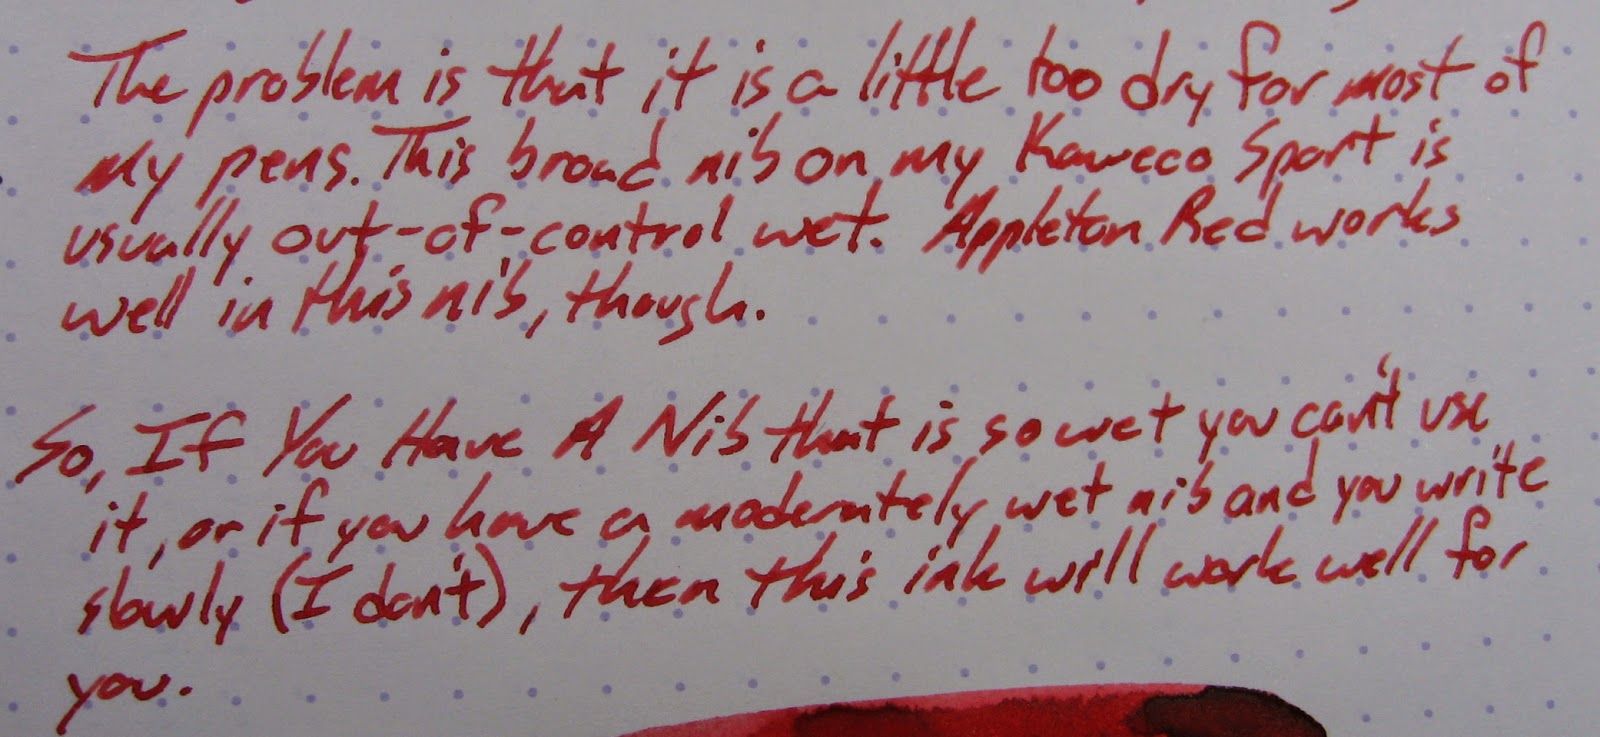 The problem is that it is a little too dry for most of
my pens. This broad nib on my Kaweco Sport is
usually out-of-control wet. Appleton Red works
well in this nib, though.
So, If You Have A Nib that is so wet you can't use
it, or if you have a moderately wet nib and you write
slowly (I don't), then this ink will work well for
you.